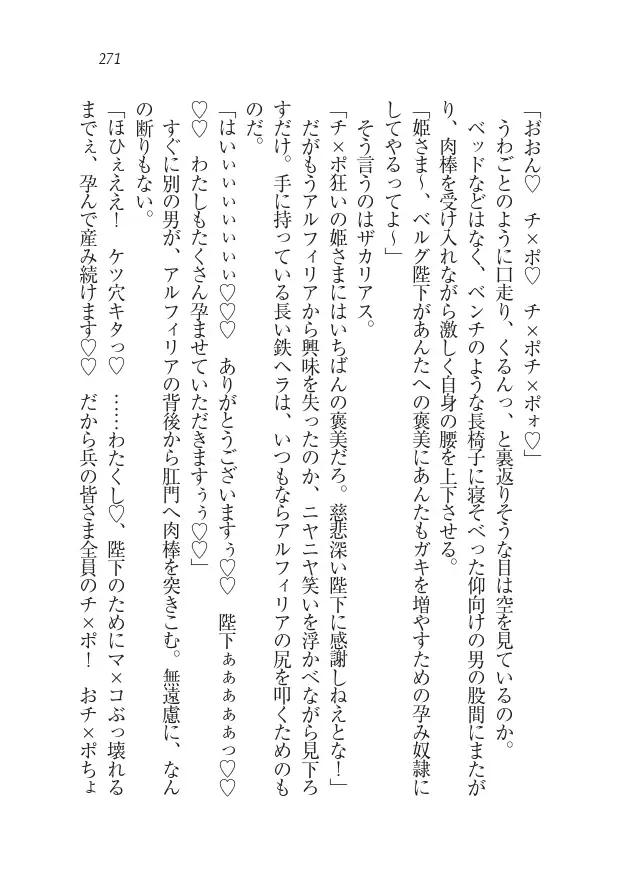 271
「おおん♡　チ×ポ♡　チ×ポチ×ポォ♡」
　うわごとのように口走り、くるんっ、と裏返りそうな目は空を見ているのか。
　ベッドなどはなく、ベンチのような長椅子に寝そべった仰向けの男の股間にまたが
り、肉棒を受け入れながら激しく自身の腰を上下させる。
「姫さま〜、ベルグ陛下があんたへの褒美にあんたもガキを増やすための孕み奴隷に
してやるってよ〜」
　そう言うのはザカリアス。
「チ×ポ狂いの姫さまにはいちばんの褒美だろ。慈悲深い陛下に感謝しねえとな！」
　だがもうアルフィリアから興味を失ったのか、ニヤニヤ笑いを浮かべながら見下ろ
すだけ。手に持っている長い鉄ヘラは、いつもならアルフィリアの尻を叩くためのも
のだ。
「はいぃぃぃぃぃぃぃ♡♡♡　ありがとうございますぅ♡♡　陛下ぁぁぁぁぁっ♡♡
♡♡　わたしもたくさん孕ませていただきますぅぅ♡♡」
　すぐに別の男が、アルフィリアの背後から肛門へ肉棒を突きこむ。無遠慮に、なん
の断りもない。
「ほひぇえええ！　ケツ穴キタっ♡　……わたくし♡、陛下のためにマ×コぶっ壊れる
までぇ、孕んで産み続けます♡♡　だから兵の皆さま全員のチ×ポ！　おチ×ポちょ